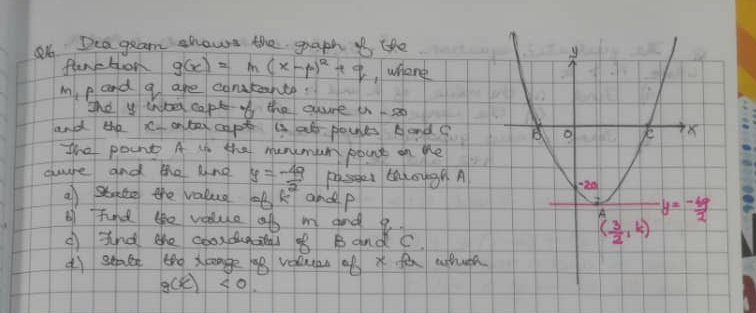 Q16. Diagram shows the graph of the
function g(x) = m (x-p)² + q, where
m, p and q are constants.
The y intercept of the curve is -20
and the x-intercept is at points B and C.
The point A is the minimum point on the
curve and the line y = -49/2 passes through A
a) State the value of k and p
b) Find the value of m and q.
c) Find the coordinates of B and C.
d) State the range of values of x for which
g(x) < 0.
y
B O C x
-20
y = -49/2
A
(3/2, k)